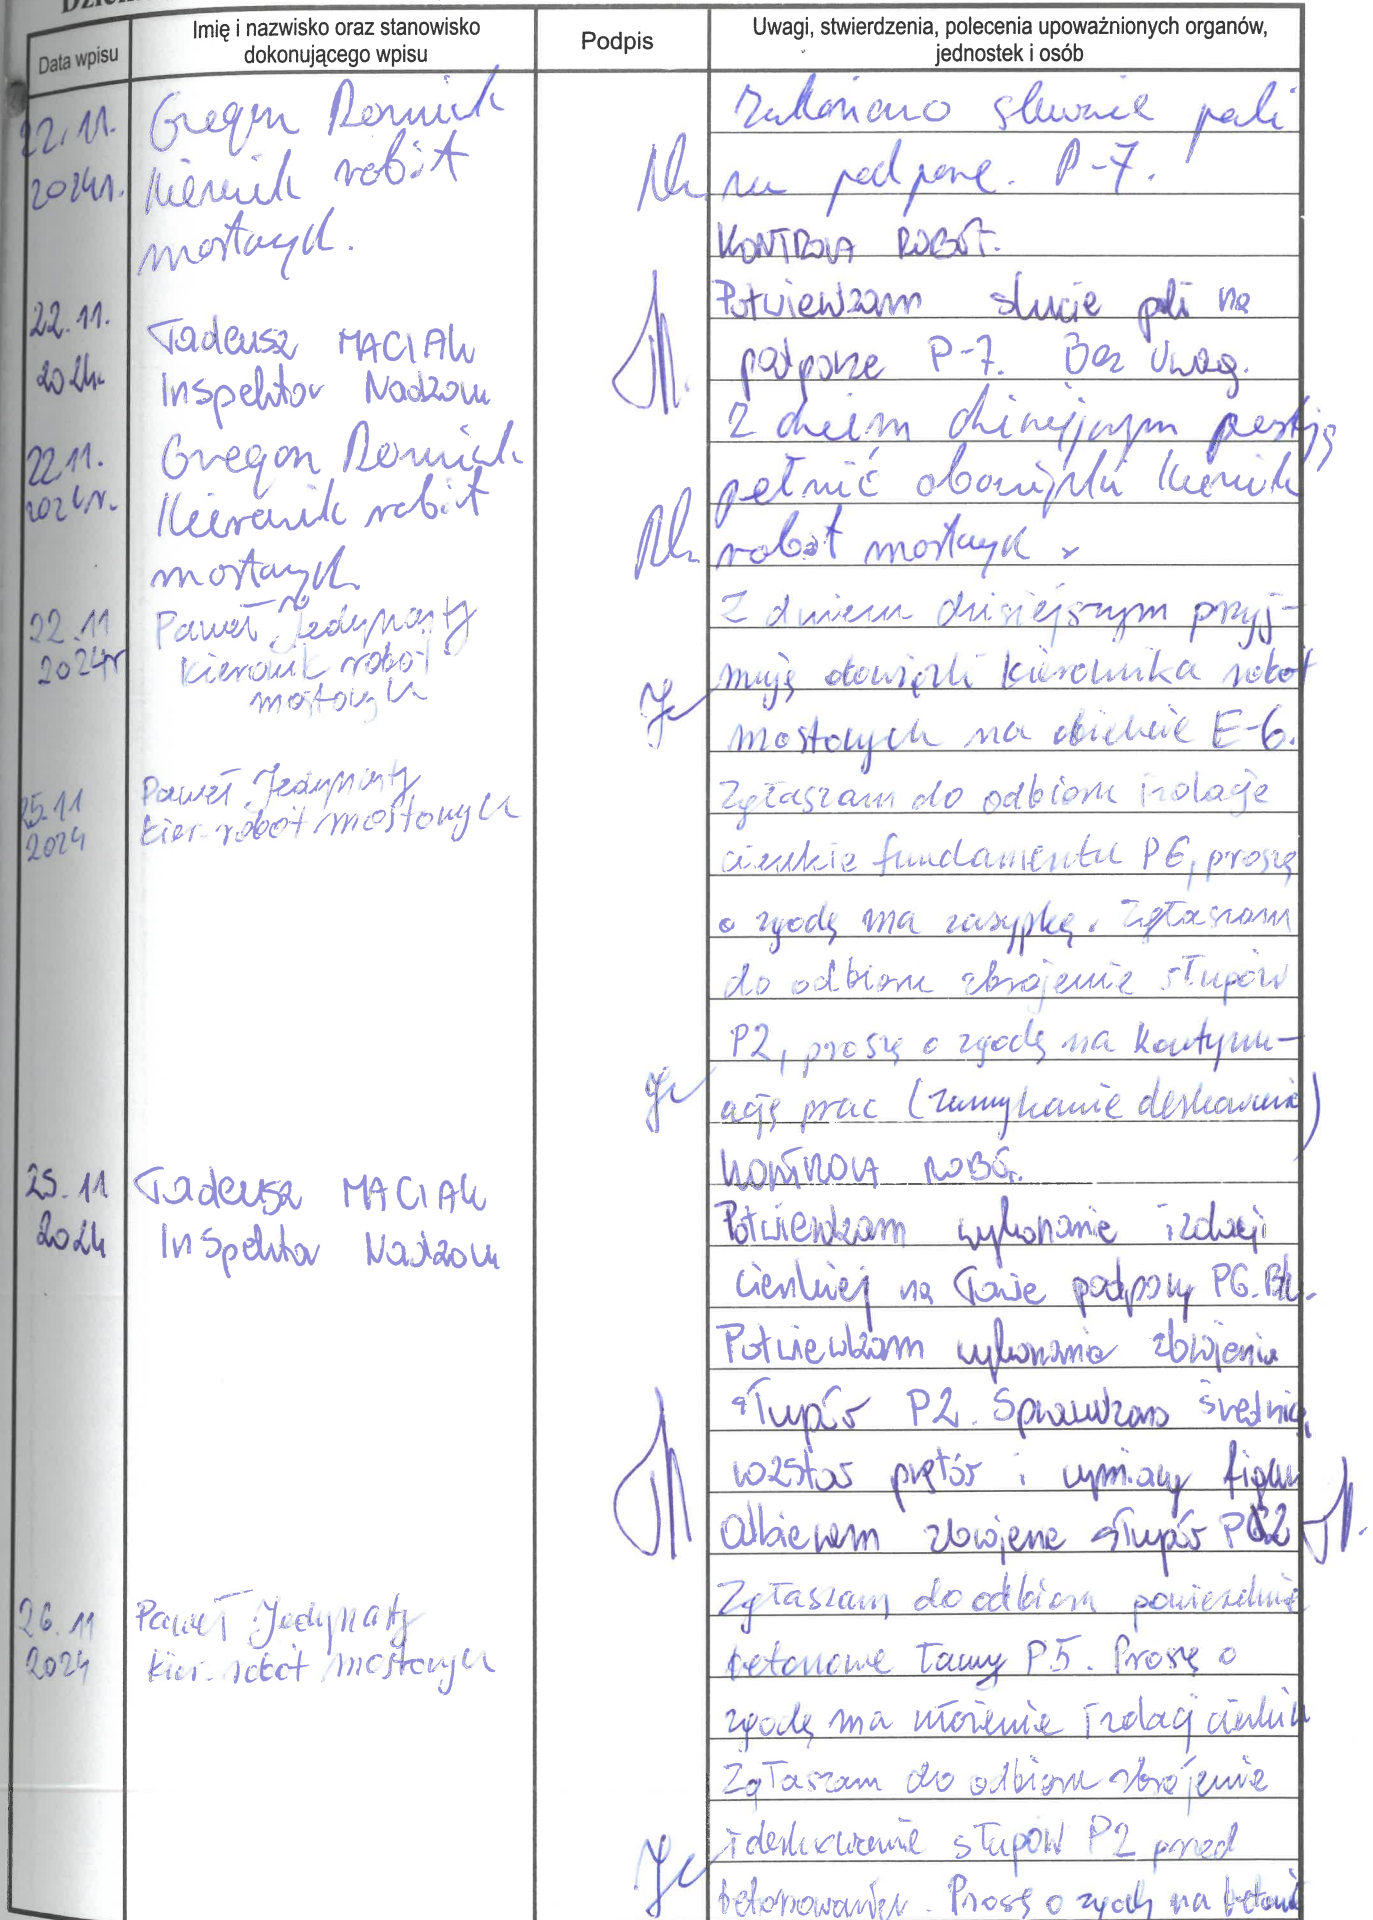 Data wpisu
Imię i nazwisko oraz stanowisko
dokonującego wpisu
Podpis
Uwagi, stwierdzenia, polecenia upoważnionych organów,
jednostek i osób
22.11.
2024r.
Kierownik robót
mostowych.
Zakończono skuwanie pali
na podporze. P-7.
KONTROLA ROBÓT.
22.11.
2024
Tadeusz MACIAK
Inspektor Nadzoru
Potwierdzam skucie pali na
podporze P-7. Bez uwag.
22.11.
2024r.
Kierownik robót
mostowych
Z dniem dzisiejszym
pełnić obowiązki kierownik
robót mostowych.
22.11
2024r
Paweł Jedynasty
kierownik robót
mostowych
Z dniem dzisiejszym przyj-
muję obowiązki kierownika robót
mostowych na obiekcie E-6.
25.11
2024
Paweł Jedynasty
kier. robót mostowych
Zgłaszam do odbioru izolacje
cienkie fundamentu P6, proszę
o zgodę na zasypkę. Zgłaszam
do odbioru zbrojenie słupów
P2, proszę o zgodę na kontynu-
ację prac (zamykanie deskowania)
KONTROLA ROBÓT.
25.11
2024
Tadeusz MACIAK
Inspektor Nadzoru
Potwierdzam wykonanie izolacji
cienkiej na ławie podpory P6.
Potwierdzam wykonanie zbrojenia
słupów P2. Sprawdzono średnicę,
rozstaw prętów i wymiary figur
Odbieram zbrojenie słupów P2
26.11
2024
Paweł Jedynasty
kier. robót mostowych
Zgłaszam do odbioru powierzchnie
betonowe ławy P5. Proszę o
zgodę na ułożenie izolacj cienkich
Zgłaszam do odbioru zbrojenie
i deskowanie słupów P2 przed
betonowaniem. Proszę o zgodę na